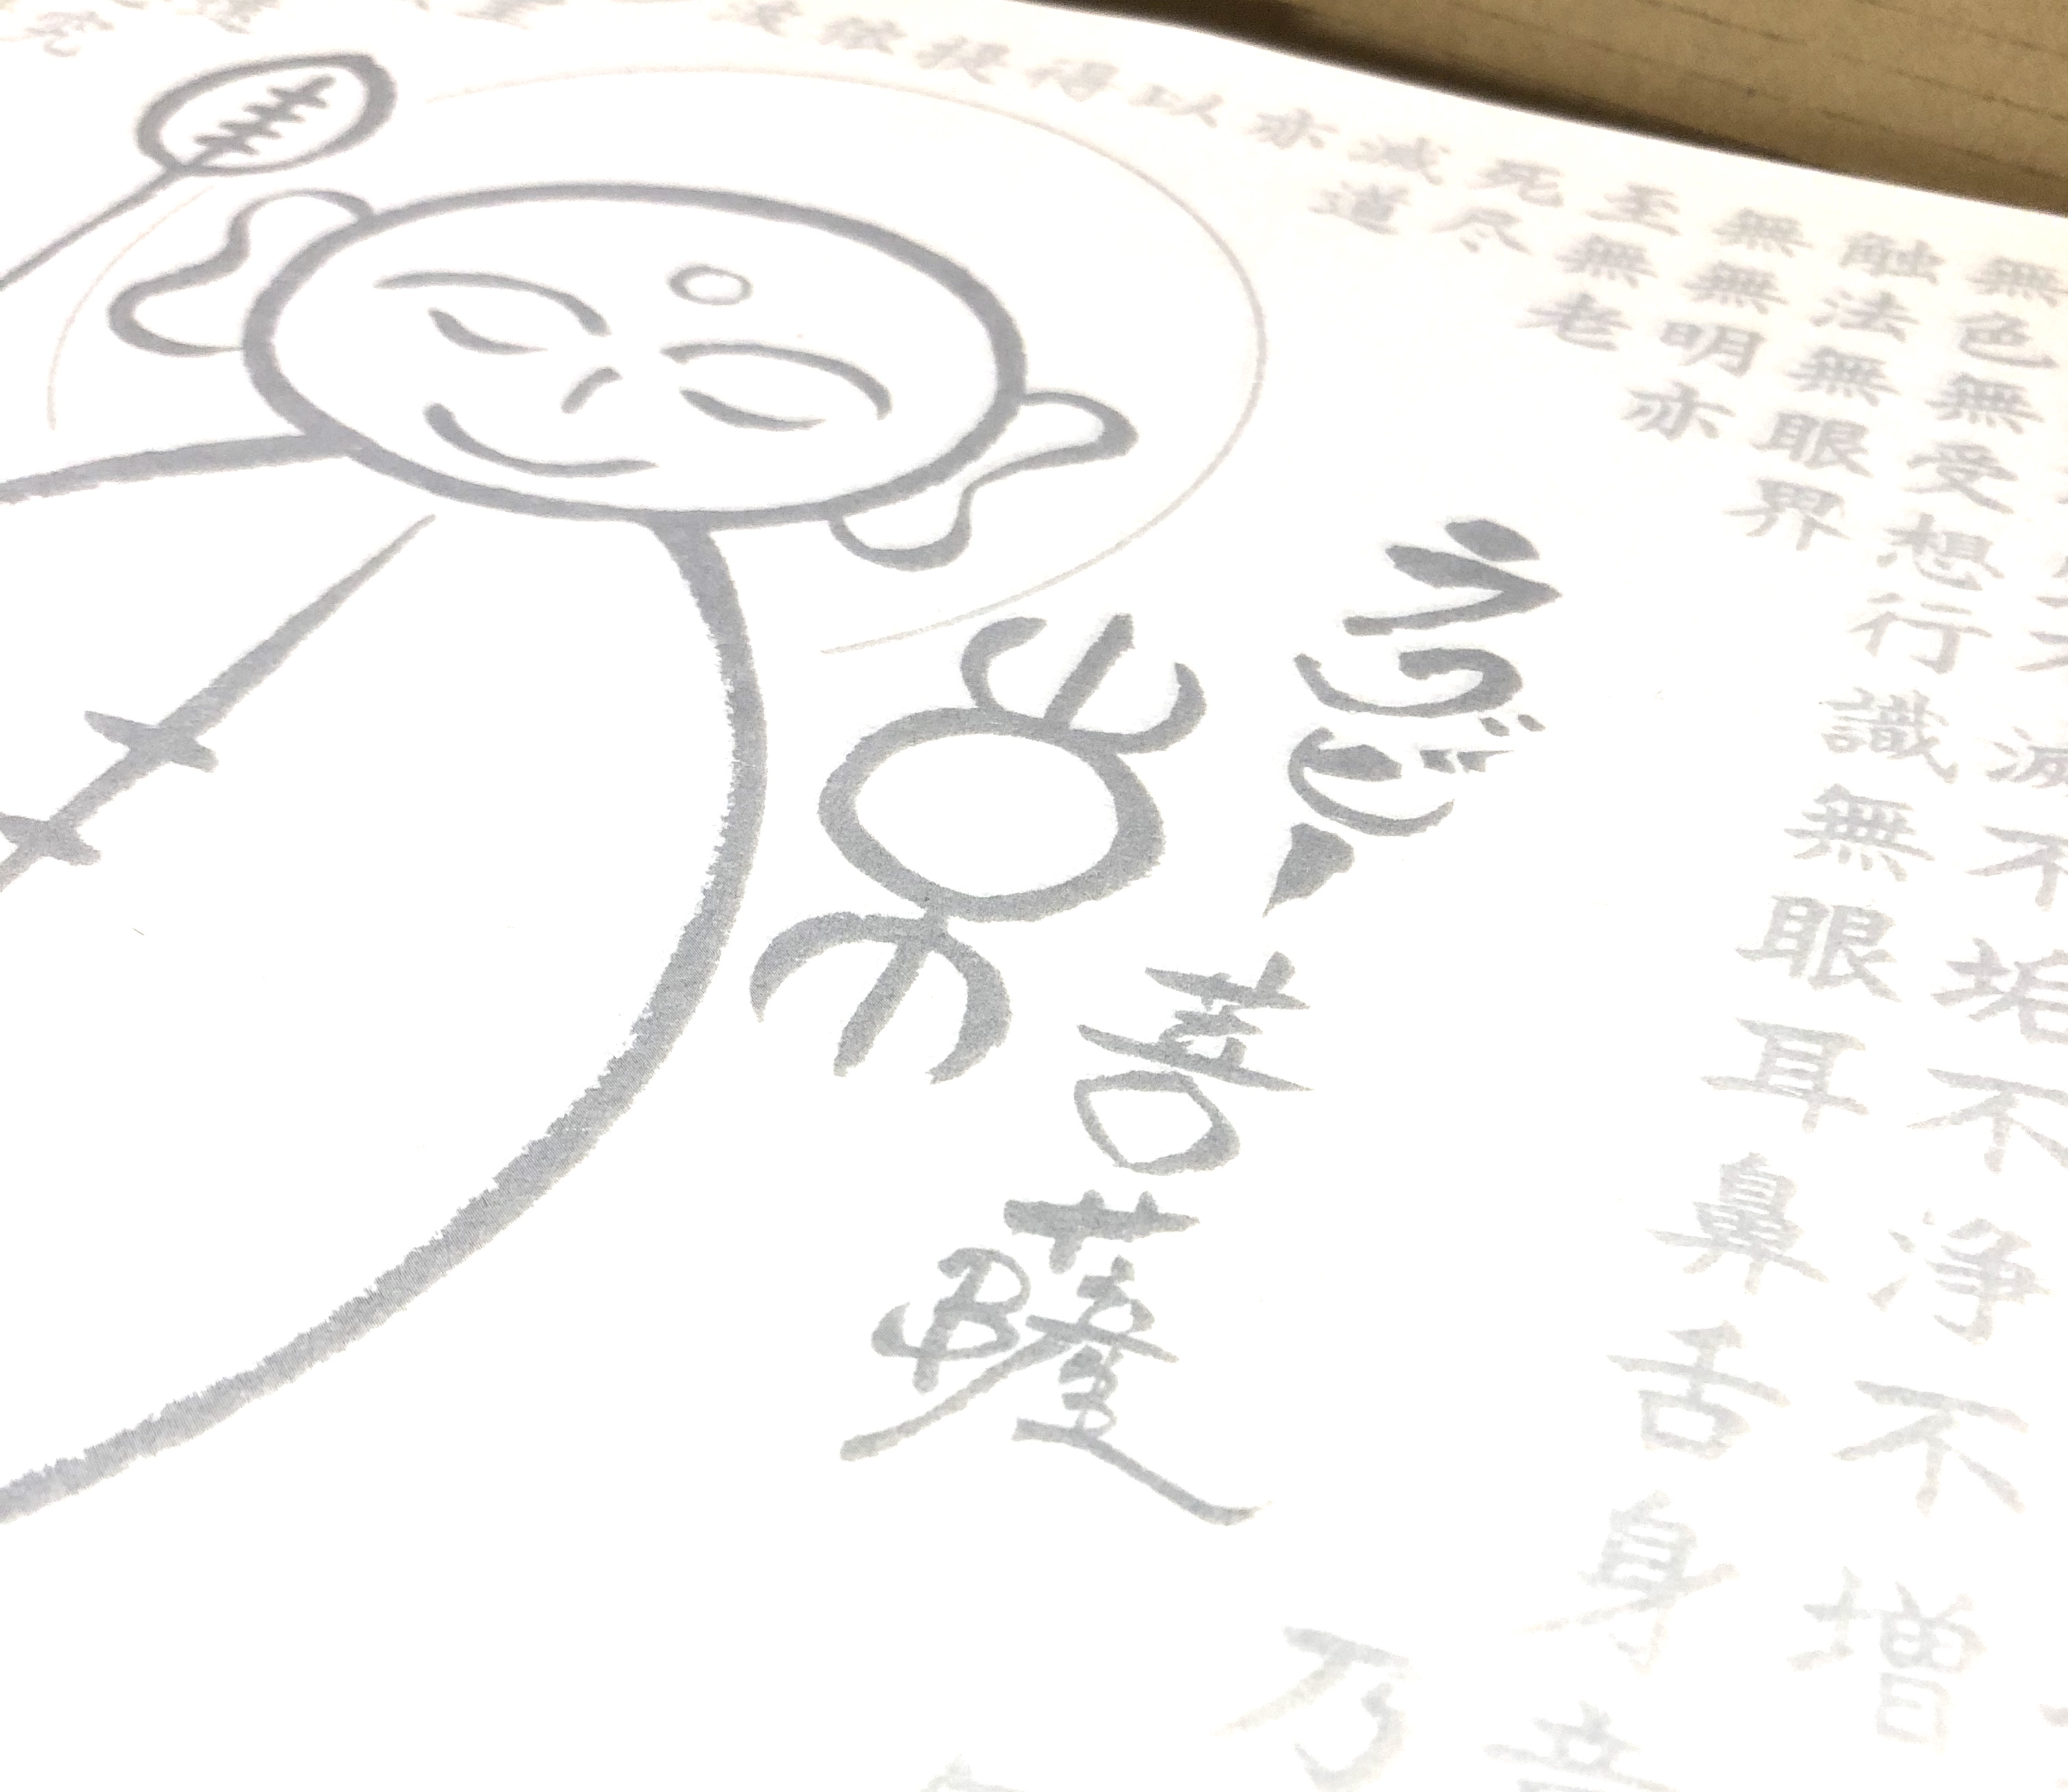 不滅不垢不浄不増
無色無受想行識無眼耳鼻舌身意
触法無眼界乃
無無明亦
至無老
死尽
滅道
亦
以
得
提
ラグビー菩薩